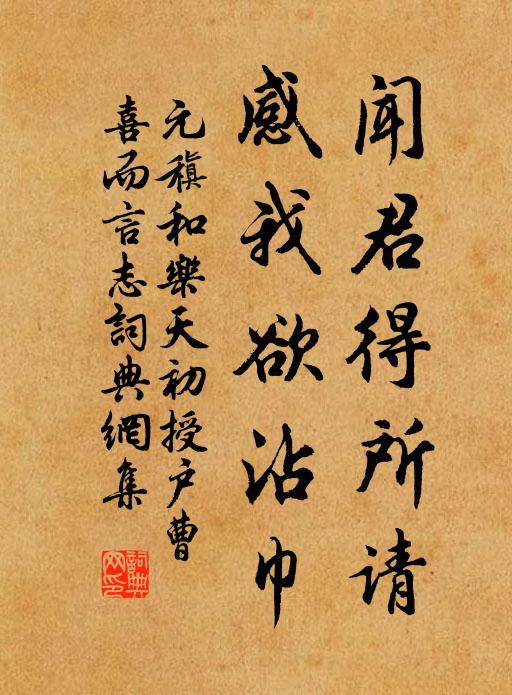 闻君得所请
感我欲沾巾
元稹和樂天初授户曹
喜而言志詞典網集
詞典网印